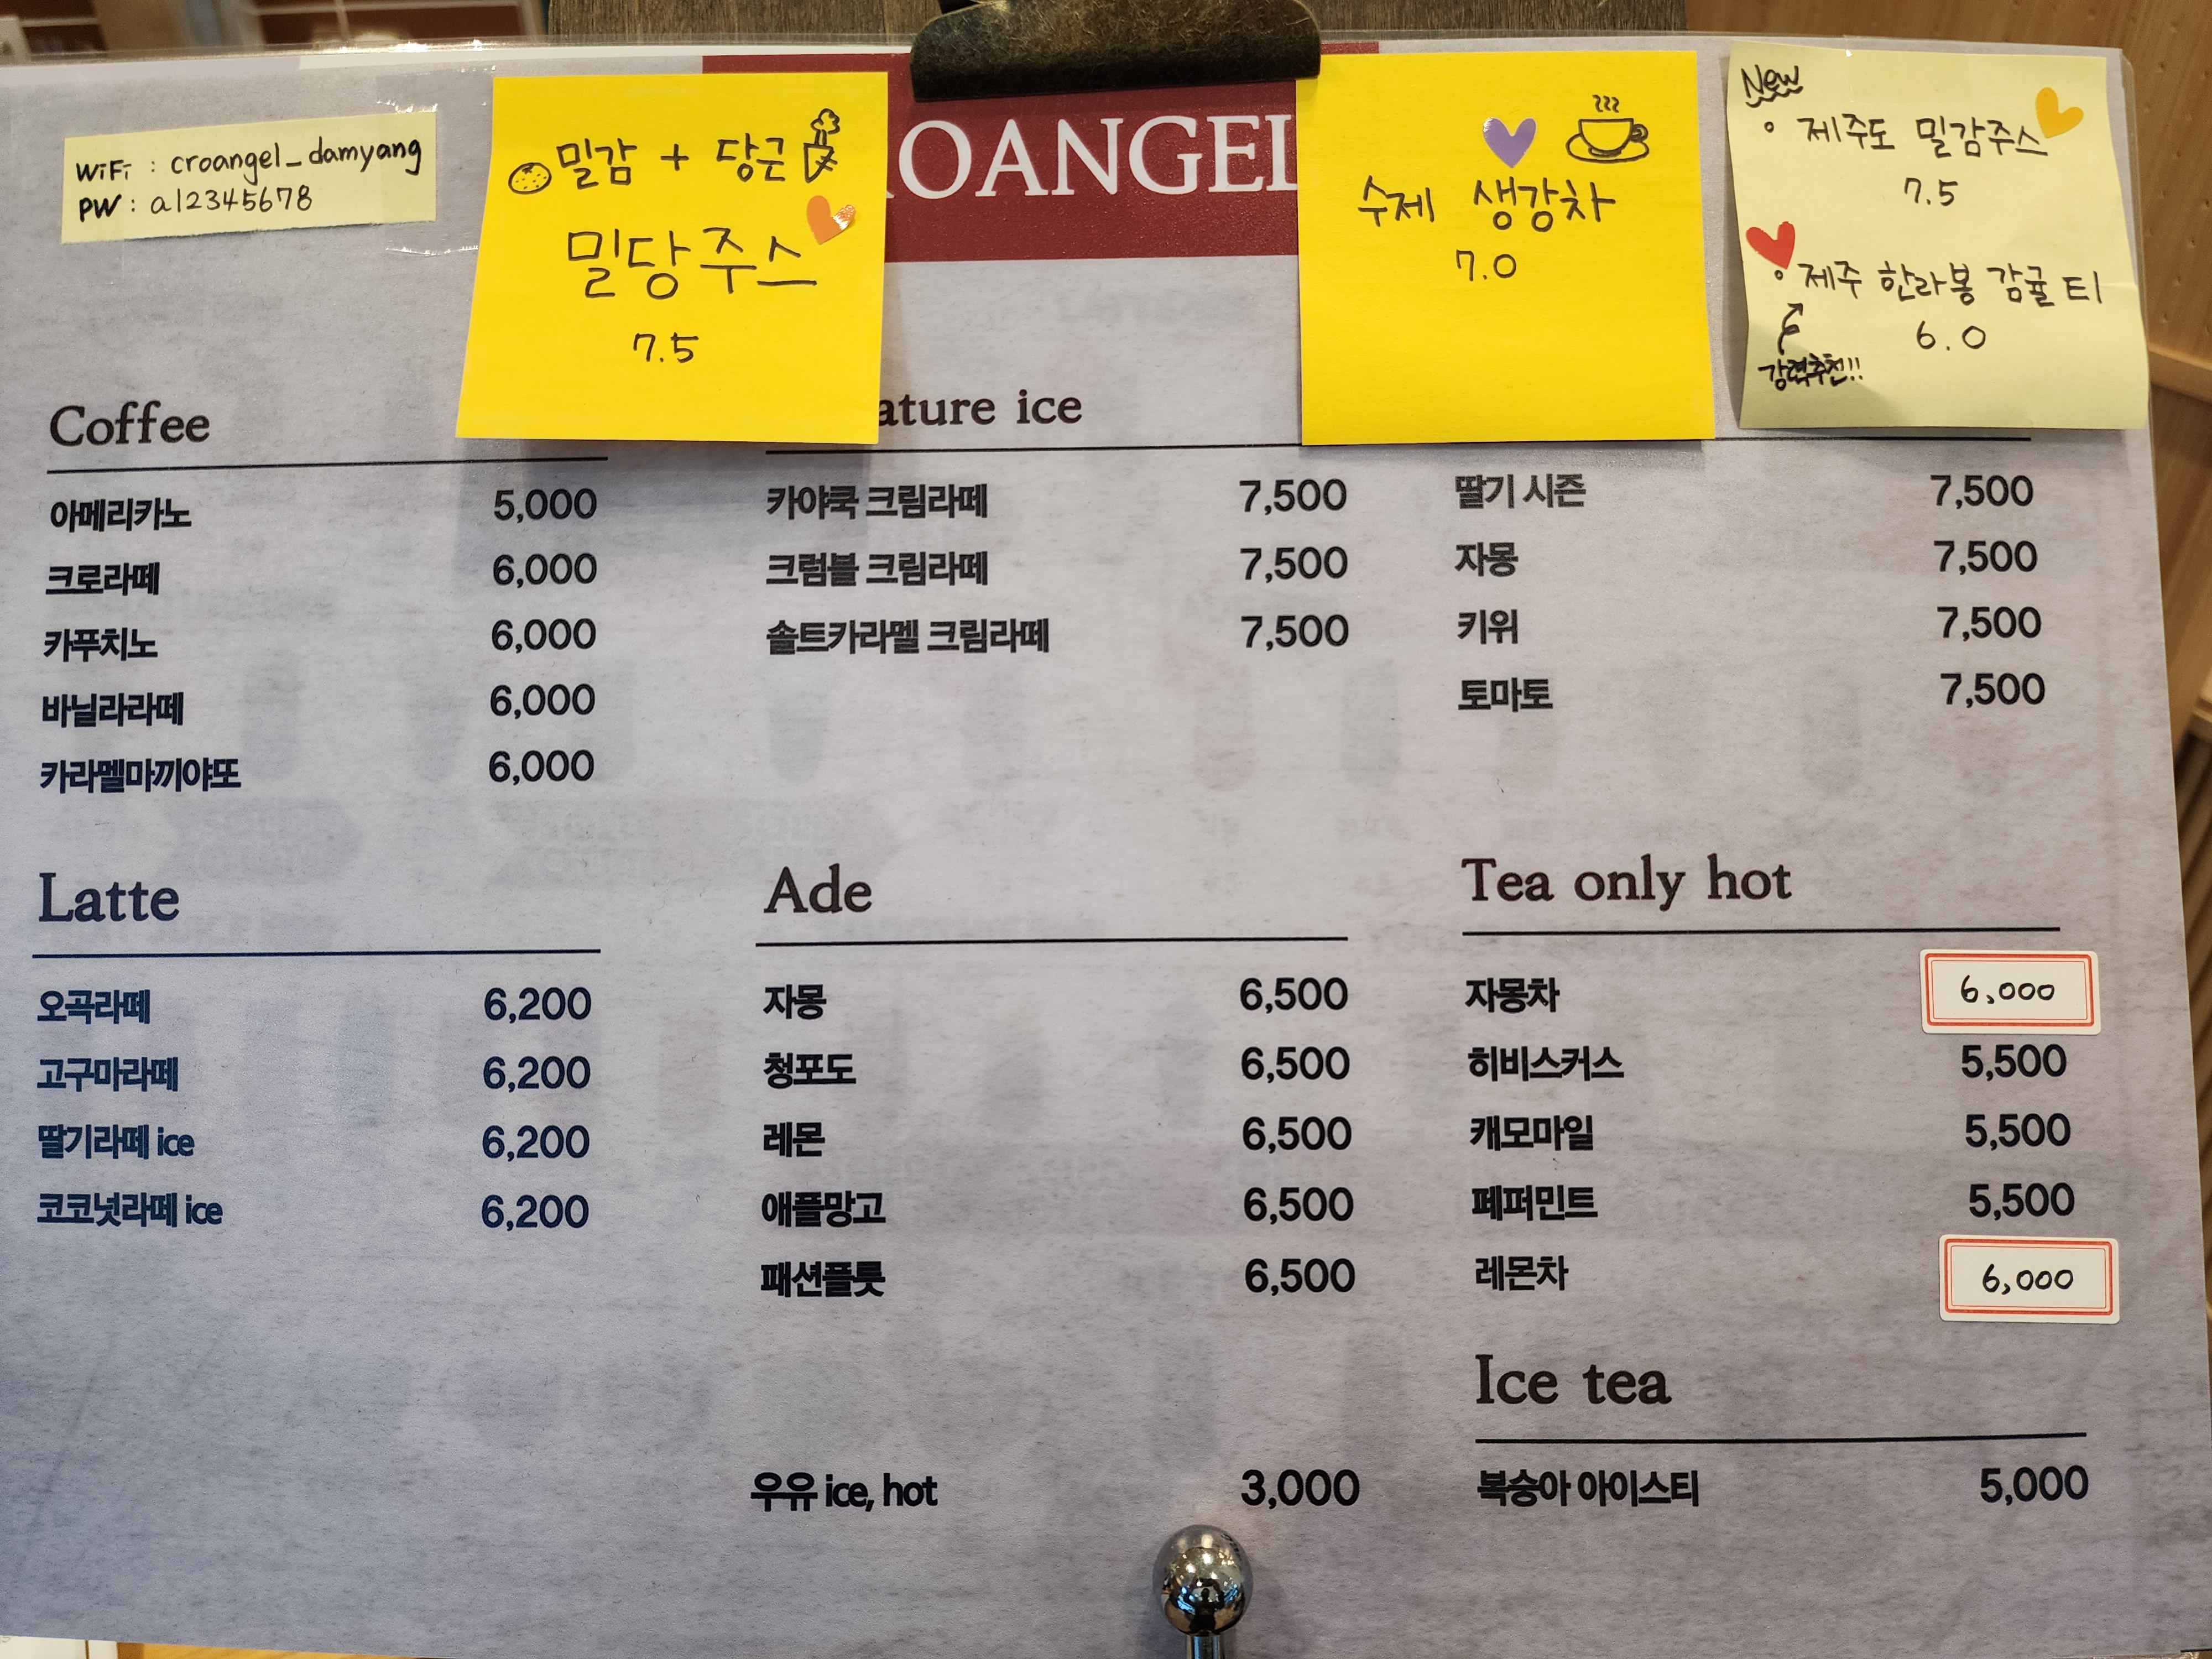 WiFi : croangel_damyang
PW : a12345678
밀감 + 당근
밀당주스
7.5
ROANGEL
수제 생강차
7.0
New
제주도 밀감주스
7.5
제주 한라봉 감귤 티
6.0
강력추천!!
Coffee
아메리카노 5,000
크로라떼 6,000
카푸치노 6,000
바닐라라떼 6,000
카라멜마끼야또 6,000
ature ice
카야쿡 크림라떼 7,500
크럼블 크림라떼 7,500
솔트카라멜 크림라떼 7,500
딸기 시즌 7,500
자몽 7,500
키위 7,500
토마토 7,500
Latte
오곡라떼 6,200
고구마라떼 6,200
딸기라떼 ice 6,200
코코넛라떼 ice 6,200
Ade
자몽 6,500
청포도 6,500
레몬 6,500
애플망고 6,500
패션플룻 6,500
우유 ice, hot 3,000
Tea only hot
자몽차 6,000
히비스커스 5,500
캐모마일 5,500
페퍼민트 5,500
레몬차 6,000
Ice tea
복숭아 아이스티 5,000